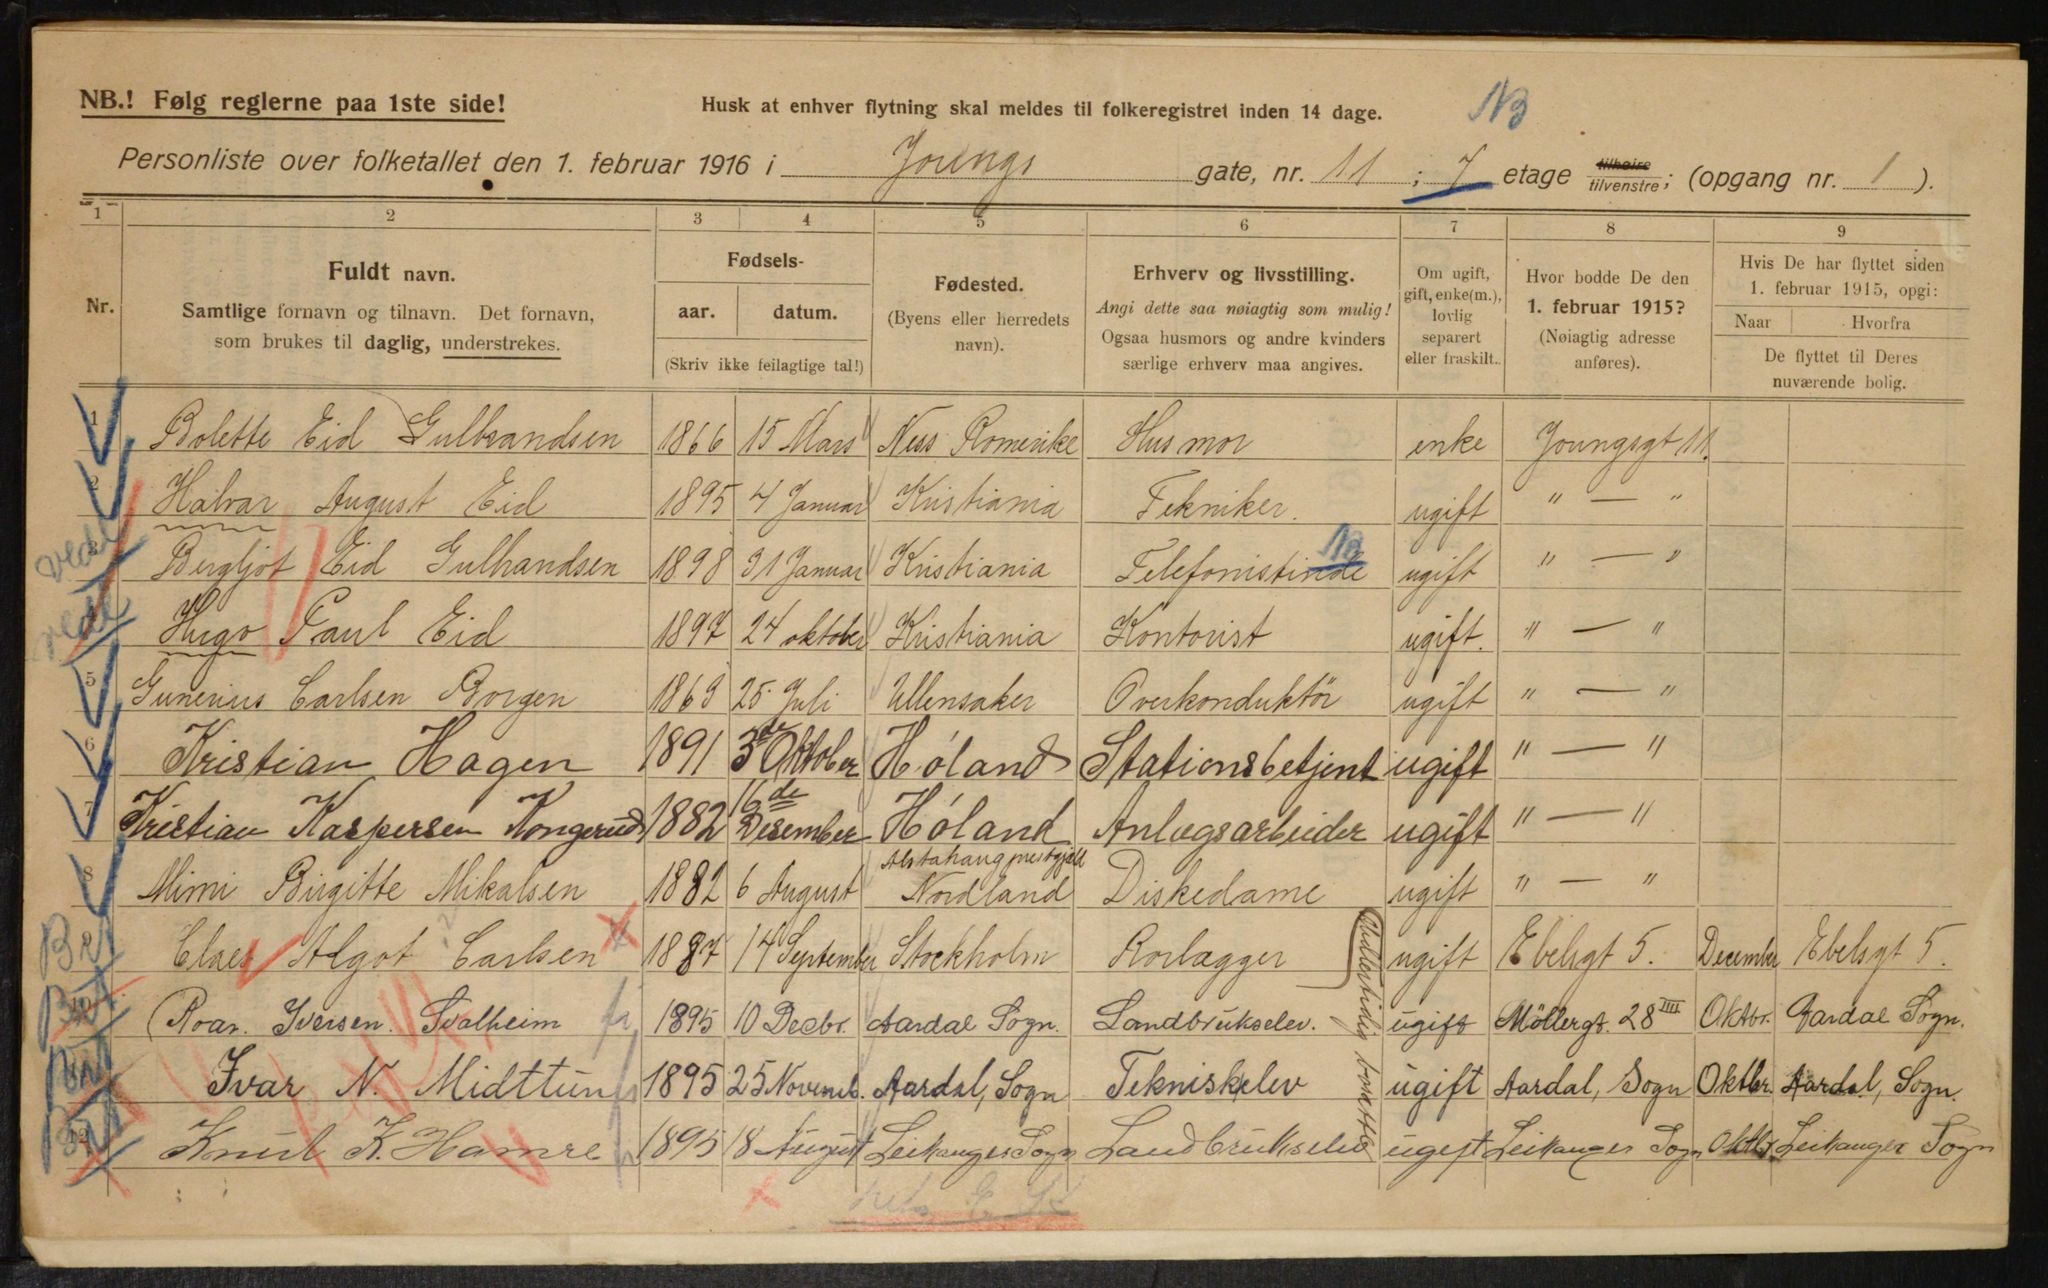 NB.! Følg reglerne paa 1ste side!
Husk at enhver flytning skal meldes til folkeregistret inden 14 dage.
NB
Personliste over folketallet den 1. februar 1916 i Youngs gate, nr. 11 ; 7 etage tilhøire tilvenstre; (opgang nr. 1 ).
1 2 3 4 5 6 7 8 9
Nr.
Fuldt navn.
Samtlige fornavn og tilnavn. Det fornavn,
som brukes til daglig, understrekes.
Fødsels-
aar. datum.
(Skriv ikke feilagtige tal!)
Fødested.
(Byens eller herredets
navn).
Erhverv og livsstilling.
Angi dette saa nøiagtig som mulig!
Ogsaa husmors og andre kvinders
særlige erhverv maa angives.
Om ugift,
gift, enke(m.),
lovlig
separert
eller fraskilt.
Hvor bodde De den
1. februar 1915?
(Nøiagtig adresse
anføres).
Hvis De har flyttet siden
1. februar 1915, opgi:
Naar Hvorfra
De flyttet til Deres
nuværende bolig.
1 Bolette Eid Gulbrandsen 1866 15 Mars Ness Romerike Husmor enke Youngsgt 11.
2 Halvar August Eid 1895 4 Januar Kristiania Tekniker. ugift " — "
3 Bergljot Eid Gulbrandsen 1898 31 Januar Kristiania Telefonistinde ugift " — "
4 Hugo Paul Eid 1897 24 oktober Kristiania Kontorist ugift. " — "
5 Gunerius Carlsen Borgen 1869 25. Juli Ullensaker Overkonduktör ugift " — "
6 Kristian Hagen 1891 3de Oktober Höland Stationsbetjent ugift " — "
7 Kristian Kaspersen Kongerud 1882 16de Desember Höland Anlægsarbeider ugift " — "
8 Mimi Birgitte Mikalsen 1882 6 August Alstahaug prestgjeld Nordland Diskedame ugift " — "
9 Claes Algot Carlsen 1887 14 September Stockholm Rorlægger ugift Ebelsgt 5. December Ebelsgt 5.
Midlertidig bosatte
10 Roar. Iversen. Svalheim 1895 10 Decbr. Aardal Sogn. Landbrukselev. ugift Möllergt. 28 III Oktbr. Aardal Sogn.
Ivar N. Midttun 1895 25 Novemb. Aardal, Sogn Tekniskelev ugift Aardal, Sogn Oktbr Aardal, Sogn.
12 Knut K. Hamre 1895 18 August Leikanger Sogn Landbrukselev ugift Leikanger Sogn Oktbr Leikanger Sogn